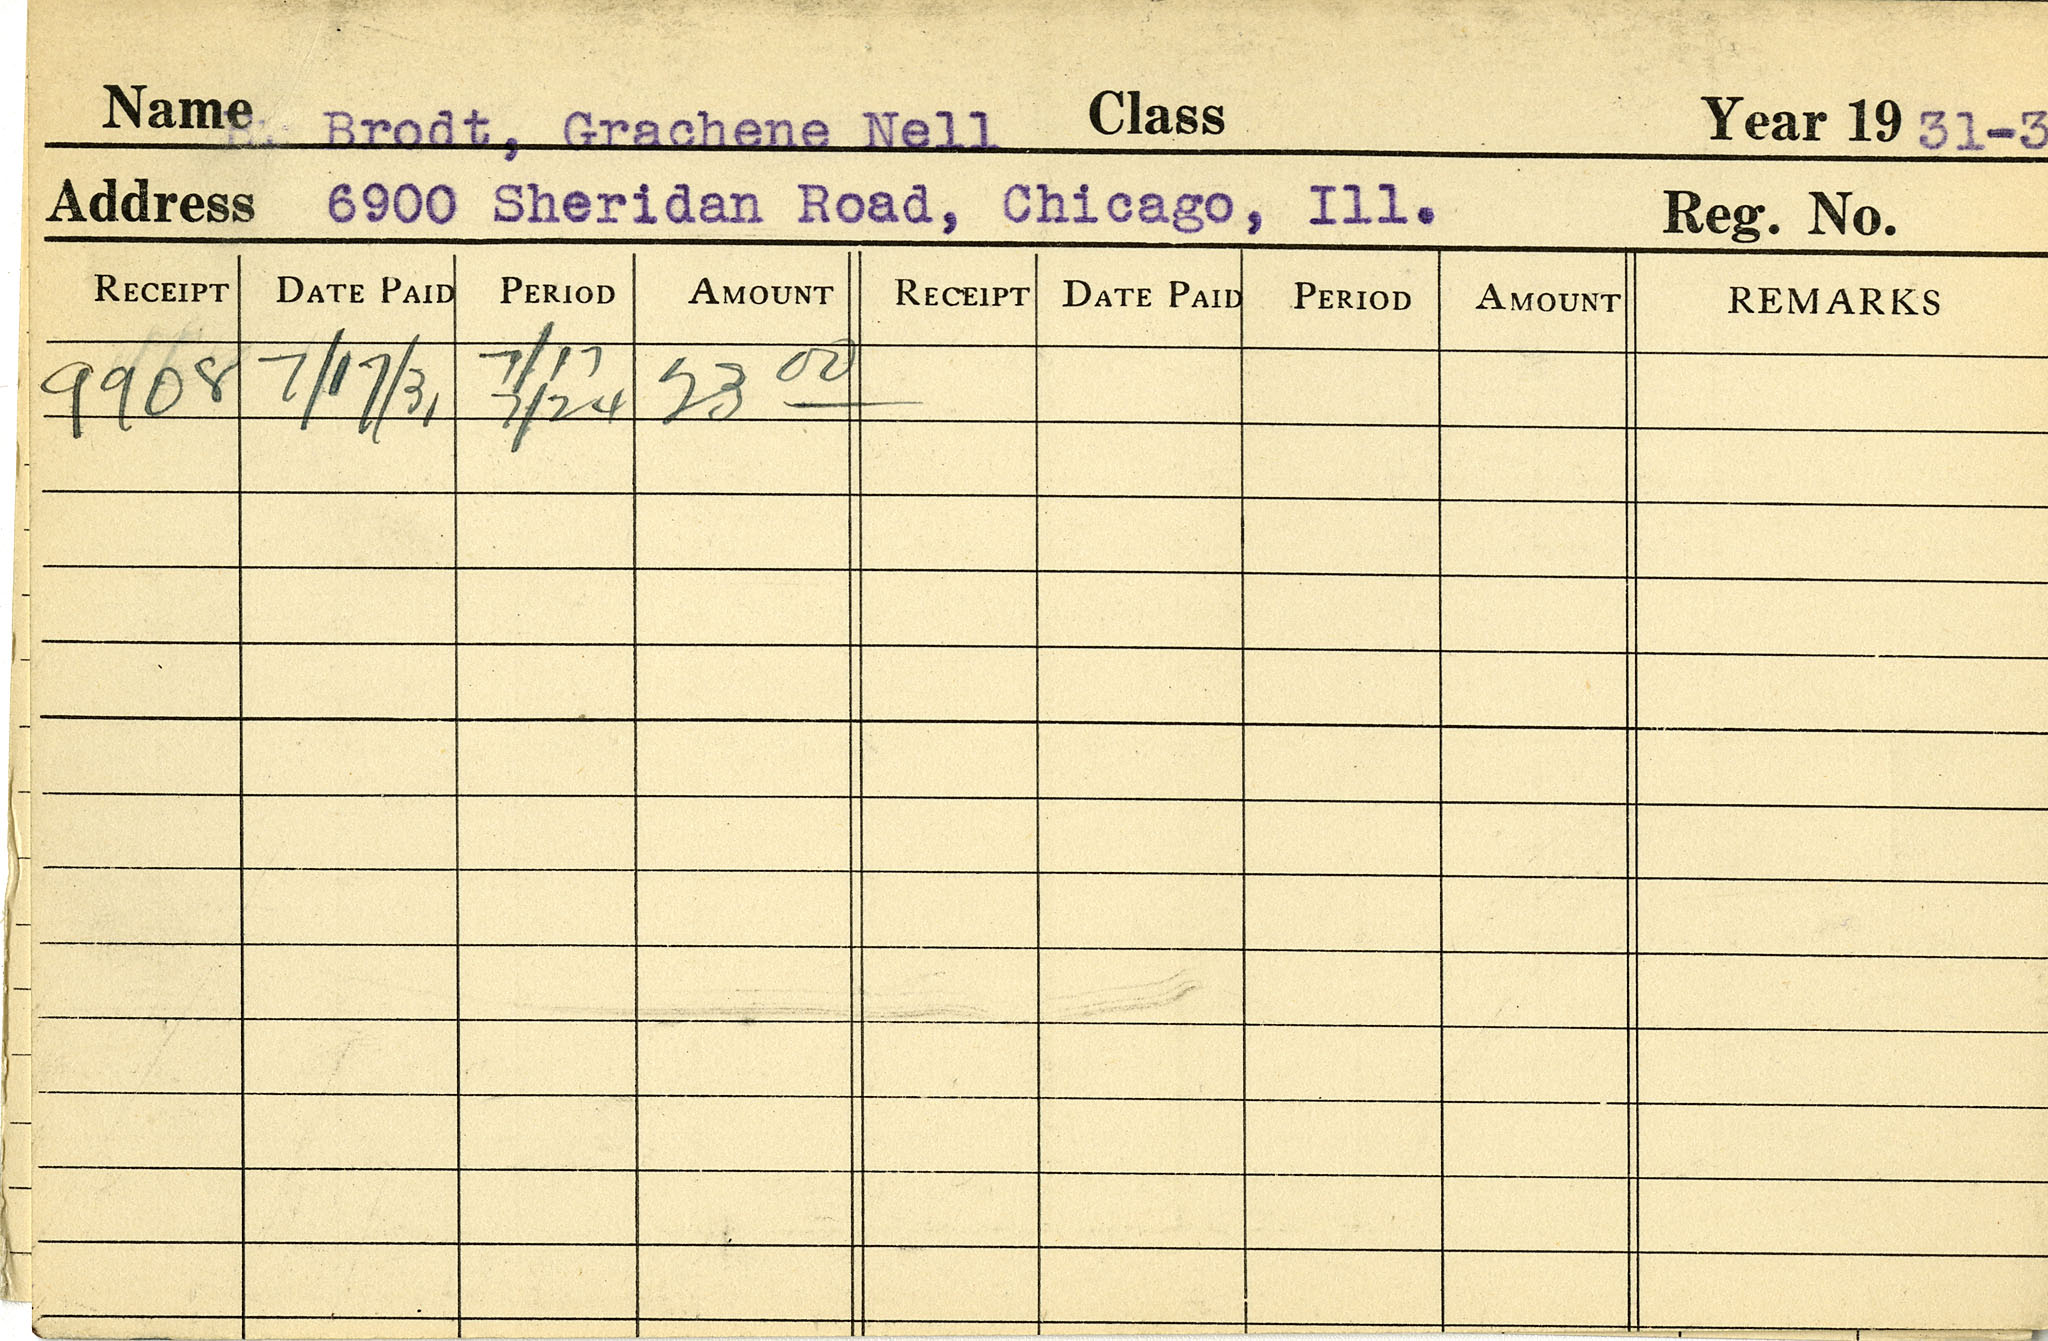 Name Brodt, Grachene Nell Class Year 19 31-3
Address 6900 Sheridan Road, Chicago, Ill. Reg. No.
RECEIPT DATE PAID PERIOD AMOUNT RECEIPT DATE PAID PERIOD AMOUNT REMARKS
9908 7/17/31 7/17 23 00
7/24